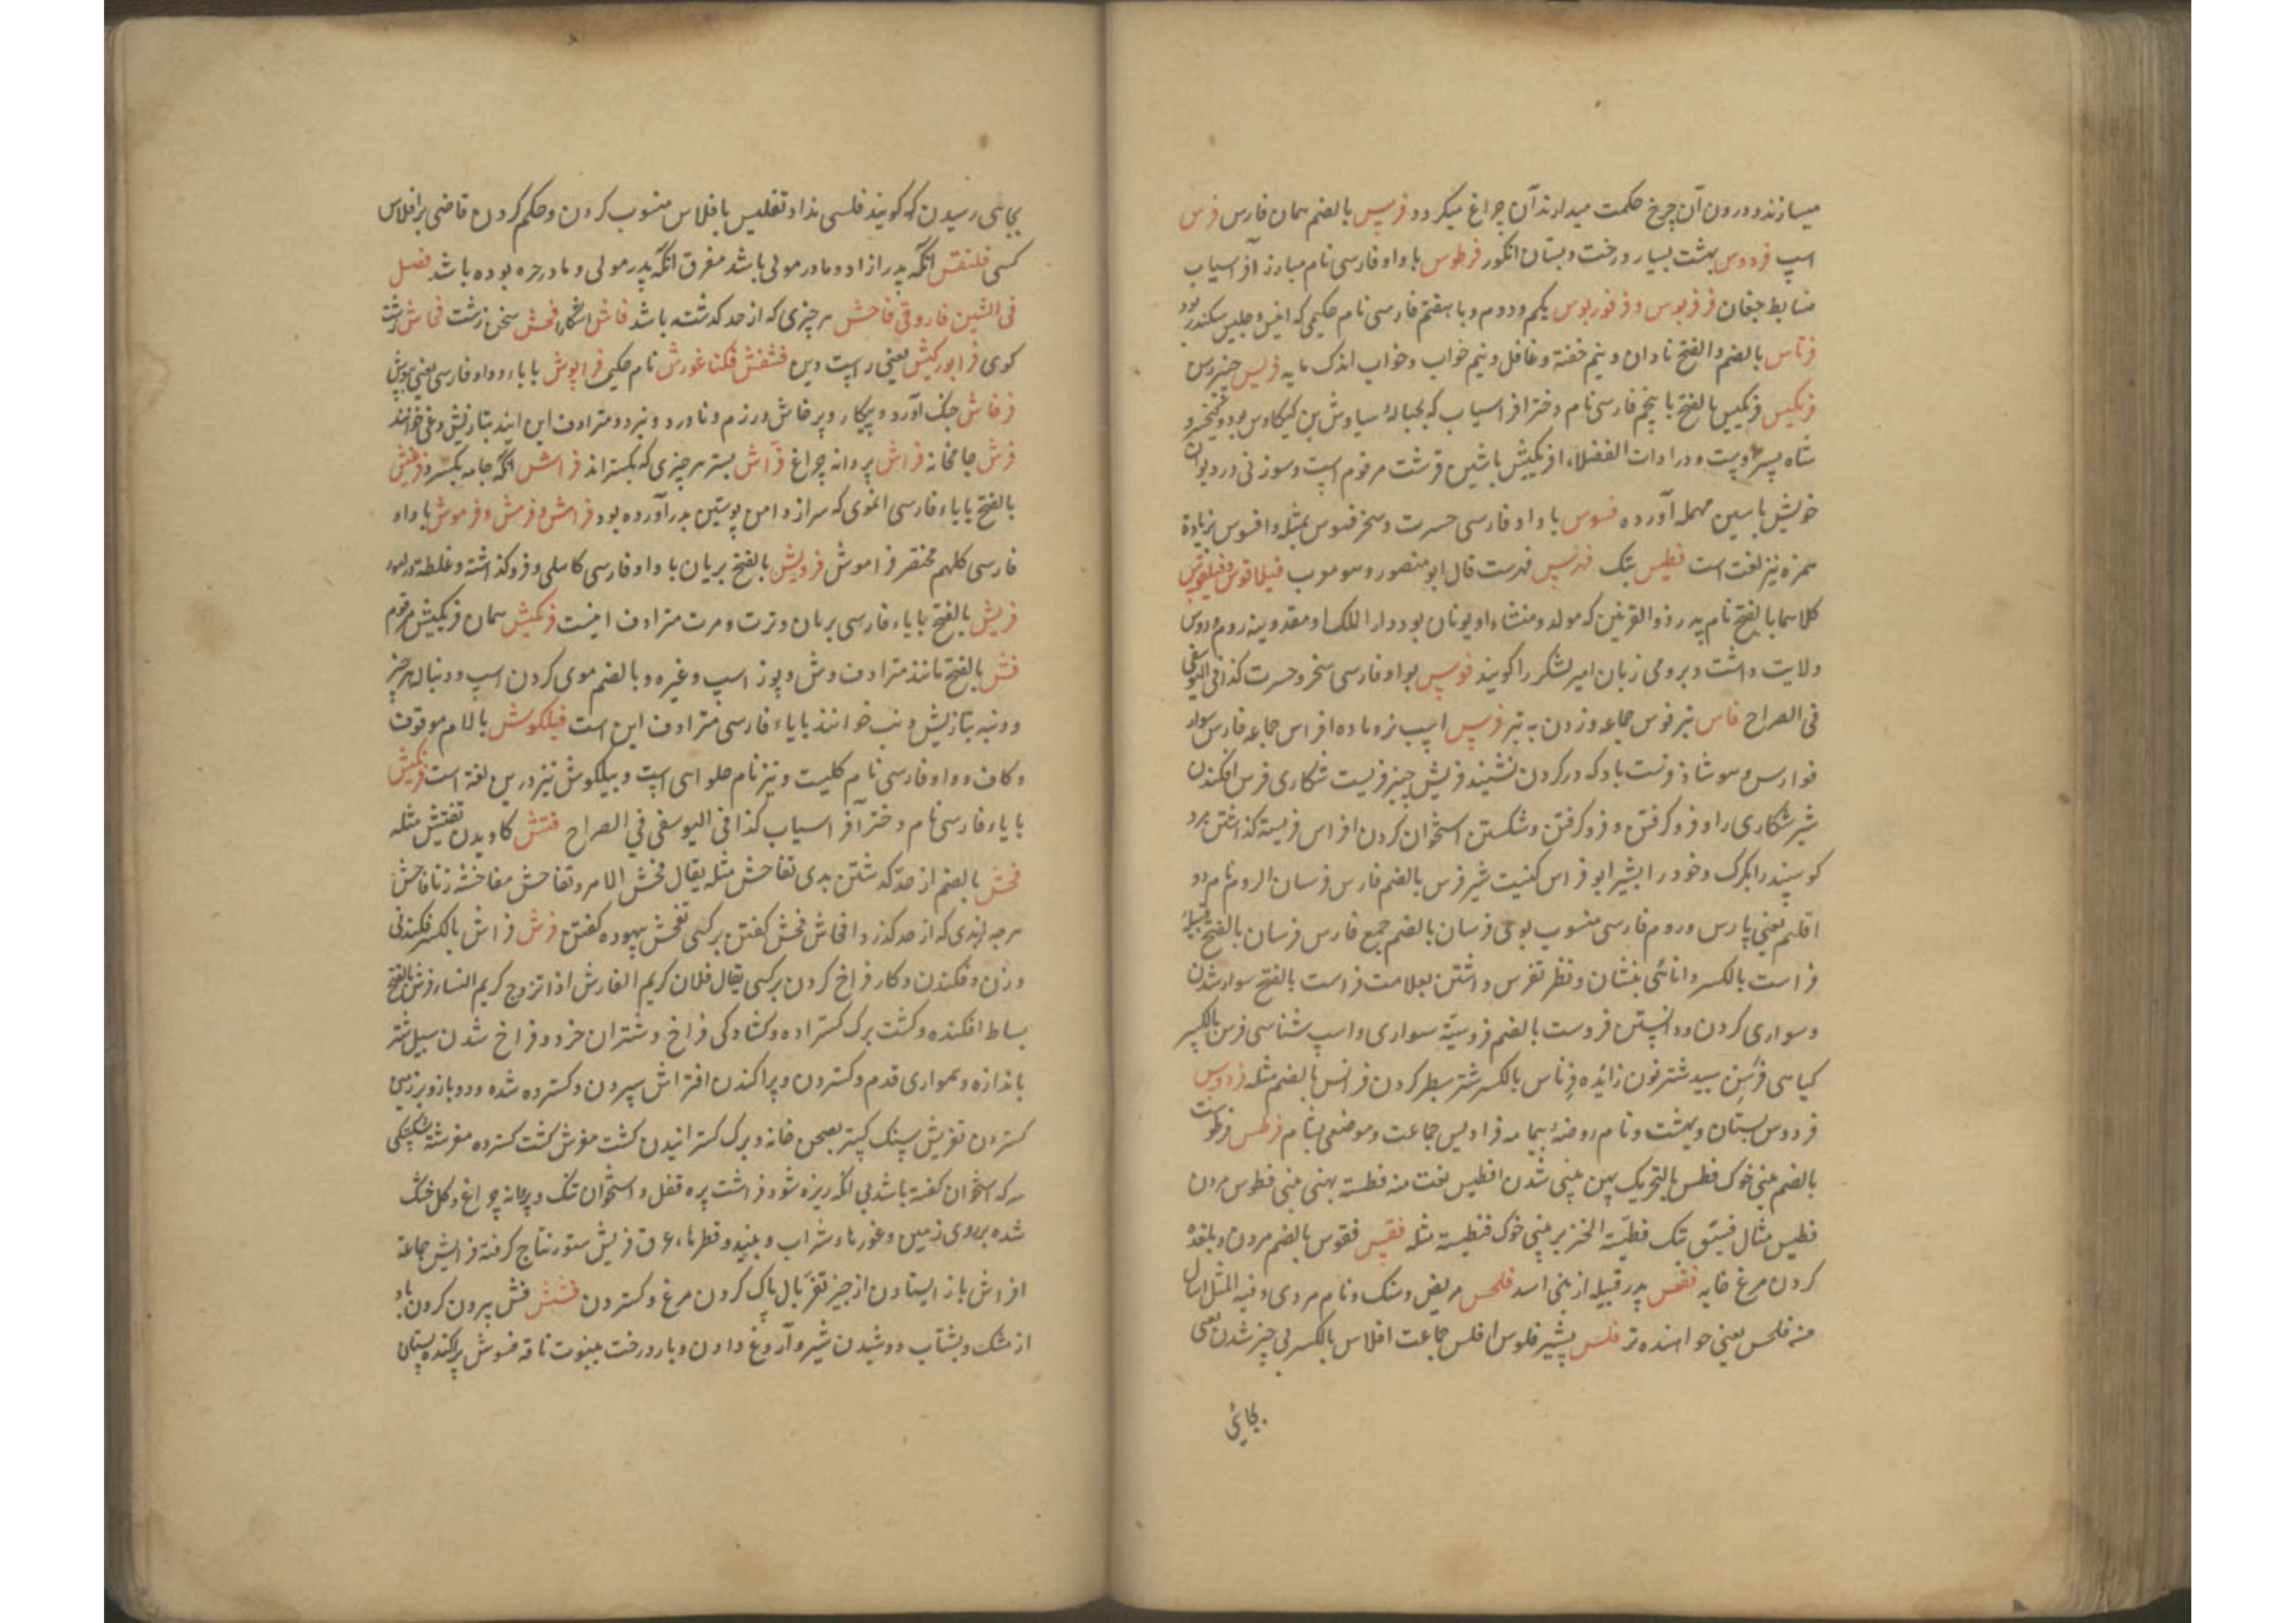 میسازند و درون آن چرخ حکمت میدارند آن چراغ میگردد فرس بالضم همان فارس فرس
اسپ فردوس بهشت بسیار درخت و بستان انگور فرطوس با واو فارسی نام مبارز افراسیاب
ضابط جغان فرفریوس و فرفوریوس یکم و دوم و با هفتم فارسی نام حکیمی که انیس و جلیس سکندر بود
فرناس بالضم و الفتح نادان و نیم خفته و غافل و نیم خواب و خواب اندک مایه
فرنکیس بالفتح با پنجم فارسی نام دختر افراسیاب که بحباله سیاوش بن کیکاوس بود و کیخسرو
شاه پسر اوست و در ادات الفضلاء افرنکیش باشین قرشت مرقوم است و سوزنی در دیوان
خویش باسین مهمله آورده فسوس با واو فارسی حسرت و سخر فنوس بمثله و افسوس بزیادة
همزه نیز لغت است فطیس پتک فهرس فهرست قال ابو منصور و هو موب فیلاقوس و فیلقوس
کلاهما بالفتح نام پدر ذو القرنین که مولد و منشاء او یونان بود و دار الملک او مقدونیه روم و روس
ولایت داشت و برومی زبان امیر لشکر را کویند فوس بواو فارسی سخر و حسرت کذا فی الیوسفی
فی الصراح فاس تبر فوس جماعه و زدن به تبر فرس اسپ نر و ماده افراس جماعه فارس سوار
فوارس و هو شاذ فرست باد که در کردن نشیند فریس چنبر فریست شکاری فرس افکندن
شیر شکاری را و فرو کرفتن و فرو کرفتن و شکستن استخوان کردن افراس فریسته کذاشتن مرد
کوسپند را بکرک و خود را بشیر ابو فراس کنیت شیر فرس بالضم فارس فرسان الروم نام دو
اقلیم یعنی پارس و روم فارسی منسوب بوی فرسان بالضم جمع فارس فرسان بالفتح قبیله
فراست بالکسر دانائی بنشان و نظر تفرس داشتن بعلامت فراست بالفتح سوار شدن
و سواری کردن و دانستن فروست بالضم فروسیّة سواری و اسپ شناسی فرس بالکسر
کیاهی فرسن سپید شتر نون زائده فرناس بالکسر شتر سطبر کردن فرانس بالضم مثله فردوس
فردوس بستان و بهشت و نام روضهٔ بیمامه فرادیس جماعت و موضعی بشام فرطس فرطوست
بالضم بینی خوک فطس بالتحریک پهن بینی شدن افطس نعت منه فطسة پهنی بینی فطوس مردن
فطیس مثال فسّیق پتک فطیسة الخنزیر بینی خوک فنطیسة مثله فقس فقوس بالضم مردن و بلغده
کردن مرغ خایه فقعس پدر قبیله از بنی اسد فلحس حریص و سک و نام مردی و فیه المثل اسال
منه فلحس یعنی خواهنده تر فلس پشیز فلوس افلس جماعت افلاس بالکسر بی چیز شدن یعنی
بجائی
بجائی رسیدن که کویند فلسی ندارد تفلیس بافلاس منسوب کردن و حکم کردن قاضی بر افلاس
کسی فلنقس آنکه پدر ازاد و مادر مولی باشد مفرق آنکه پدر مولی و مادر حره بوده باشد فصل
فی الشین فاروقی فاحش هر چیزی که از حد کذشته باشد فاش اشکارا فحش سخن زشت فحاش زشت
کوی فرابورکیش یعنی راست دین فشفش فکناغورش نام حکیم فراپوش باباء و واو فارسی یعنی بپوش
فرخاش جنک آورد و پیکار و پرخاش و رزم و ناورد و نبرد و مترادف این
فرش جامخانه فراش پروانه چراغ فراش بستر هر چیزی که بکسترانند فراش انکه جامه بکسترد
بالفتح بایاء فارسی انموی که سر از دامن پوستین بدر آورده بود فرامش و فرمش و فرموش با واو
فارسی کلهم مختصر فراموش فرویش بالفتح بریان با واو فارسی کاهلی و فروکذاشته و غلطه در امور
فریش بالفتح بایاء فارسی بریان و ترت و مرت مترادف اینست فرنکیش همان فرنکیس مرقوم
فش بالفتح مانند مترادف وش و پوز اسپ و غیره و بالضم موی کردن اسپ و دنباله هر چیز
و دنبه بتازیش ذنب خوانند بایاء فارسی مترادف این است فیلکوش بالام موقوف
و کاف و واو فارسی نام کلیست و نیز نام حلوائی است و پیلکوش نیز درین لغة است فرنکیش
بایاء فارسی نام دختر افراسیاب کذا فی الیوسفی فی الصراح فتش کاویدن تفتیش مثله
فحش بالضم از حد کذشتن بدی تفاحش مثله یقال فحش الامر و تفاحش مفاحشه زنا فاحش
هر چه از بدی که از حد کذرد افحاش فحش کفتن بر کسی تفحش بیهوده کفتن فرش فراش بالکسر فکندنی
و زن و فکندن و کار فراخ کردن بر کسی یقال فلان کریم المفارش اذا تزوج کریم النساء فرش بالفتح
بساط افکنده و کشت برک کستراده و کشادکی فراخ و شتران خرد و فراخ شدن سبل شتر
باندازه و همواری قدم و کستردن و پراکندن افتراش سپردن و کسترده شده و دو بازو بر زمین
کستردن تفریش سنک کستر بصحن خانه و برک کسترانیدن کشت مفرش کشت کسترده مفرشة شکستکی
سر که استخوان کفته باشد بی آنکه ریزه شود فراشت پره قفل و استخوان تنک و پروانه چراغ و کل خشک
شده بر روی زمین و غورهاء شراب و نبیذ و قطرهاء عرق فریش ستور نتاج کرفته فرایش جماعة
افراش باز ایستادن از چیز تفرش بال پاک کردن مرغ و کستردن فشش فش بیرون کردن باد
از مشک و بشتاب دوشیدن شیر و آروغ دادن و بار درخت ینبوت ناقه فشوش پراکنده پستان